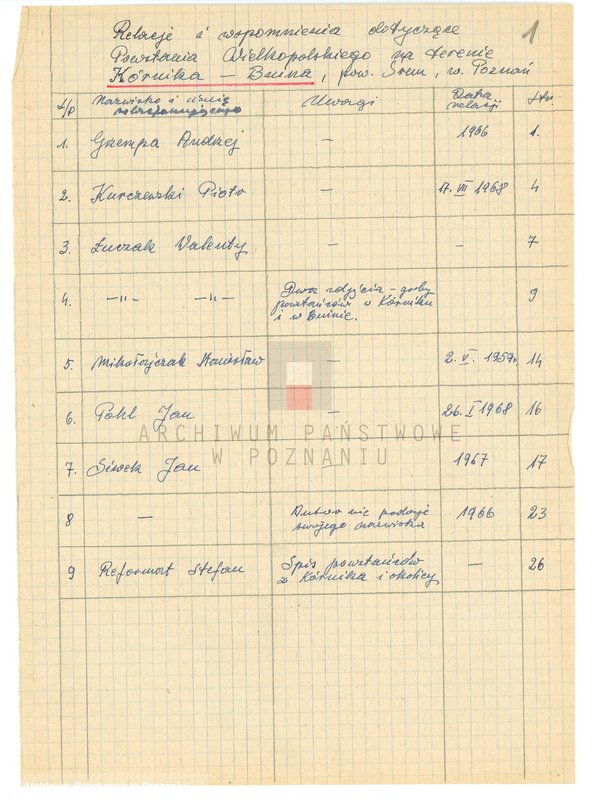 1
Relacje i wspomnienia dotyczące
Powstania Wielkopolskiego na terenie
Kórnika – Bnina, pow. Śrem, w. Poznań
L/p Nazwisko i imię Uwagi Data relacji Str.
1. Grzempa Andrzej – 1966 1.
2. Kurczewski Piotr – 17. VII 1968 4
3. Łuczak Walenty – – 7
4. —"— —"— Dwa zdjęcia – groby powstańców w Kórniku i w Bninie. 9
5. Mikołajczak Stanisław – 2. V. 1959r. 14
6. Pohl Jan – 26. I 1968 16
7. Siwek Jan – 1967 17
8 – Autor nie podaje swojego nazwiska 1966 23
9 Reformat Stefan Spis powstańców z Kórnika i okolicy – 26
ARCHIWUM PAŃSTWOWE
W POZNANIU